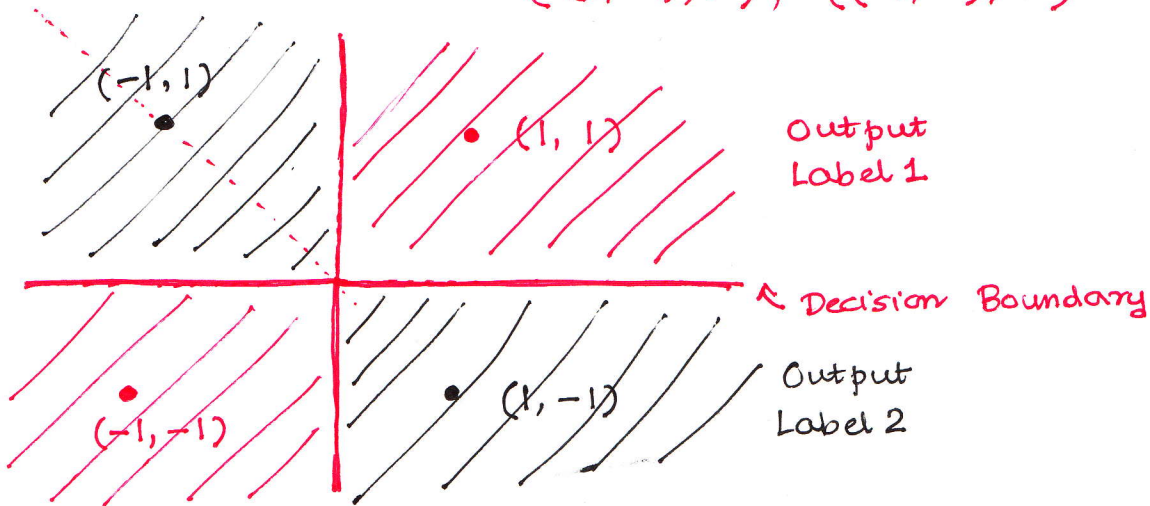 (-1, 1)
(1, 1)
Output
Label 1
Decision Boundary
(-1, -1)
(1, -1)
Output
Label 2